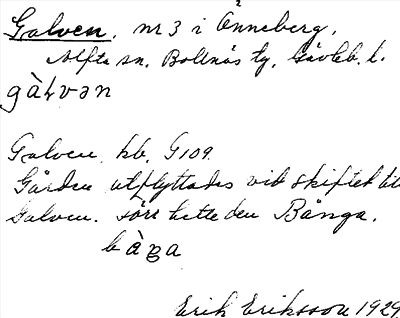 Galven, nr 3 i Änneberg,
Alfta sn. Bollnäs tg, Gävleb. l.
gàɫvən
Galven kb. G 109.
Gården utflyttades vid skiftet till
Galven. Förr hette den Bånga.
bàga
Erik Eriksson 1929